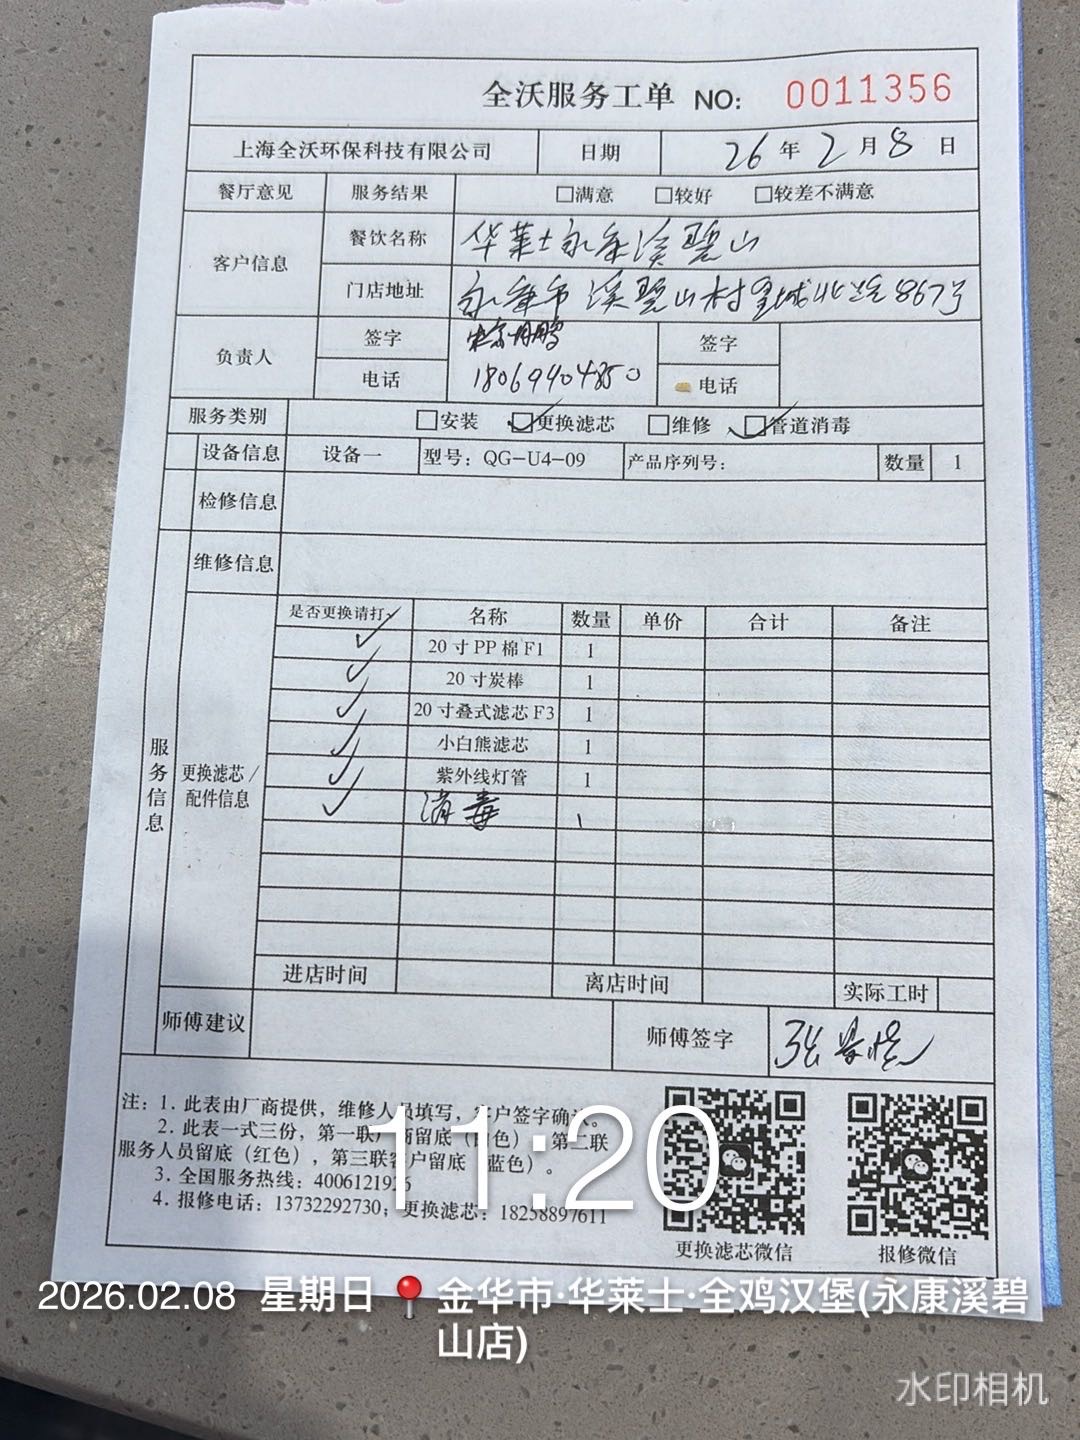 全沃服务工单 NO: 0011356
上海全沃环保科技有限公司 日期 26年2月8日
餐厅意见 服务结果 □满意 □较好 □较差不满意
客户信息 餐饮名称 华莱士永康溪碧山
门店地址 永康市溪碧山村 城北路867号
负责人 签字 鹏 签字
电话 18069404850 电话
服务类别 □安装 ☑更换滤芯 □维修 ☑管道消毒
设备信息 设备一 型号: QG-U4-09 产品序列号: 数量 1
检修信息
维修信息
服务信息
更换滤芯/配件信息
是否更换请打✓ 名称 数量 单价 合计 备注
✓ 20寸PP棉F1 1
✓ 20寸炭棒 1
✓ 20寸叠式滤芯F3 1
✓ 小白熊滤芯 1
✓ 紫外线灯管 1
✓ 消毒 1
进店时间 离店时间 实际工时
师傅建议 师傅签字 张
注: 1. 此表由厂商提供, 维修人员填写, 客户签字确认。
2. 此表一式三份, 第一联厂商留底(白色), 第二联
服务人员留底(红色), 第三联客户留底(蓝色)。
3. 全国服务热线: 4006121926
4. 报修电话: 13732292730; 更换滤芯: 18258897611
更换滤芯微信 报修微信
11:20
2026.02.08 星期日 金华市·华莱士·全鸡汉堡(永康溪碧
山店)
水印相机